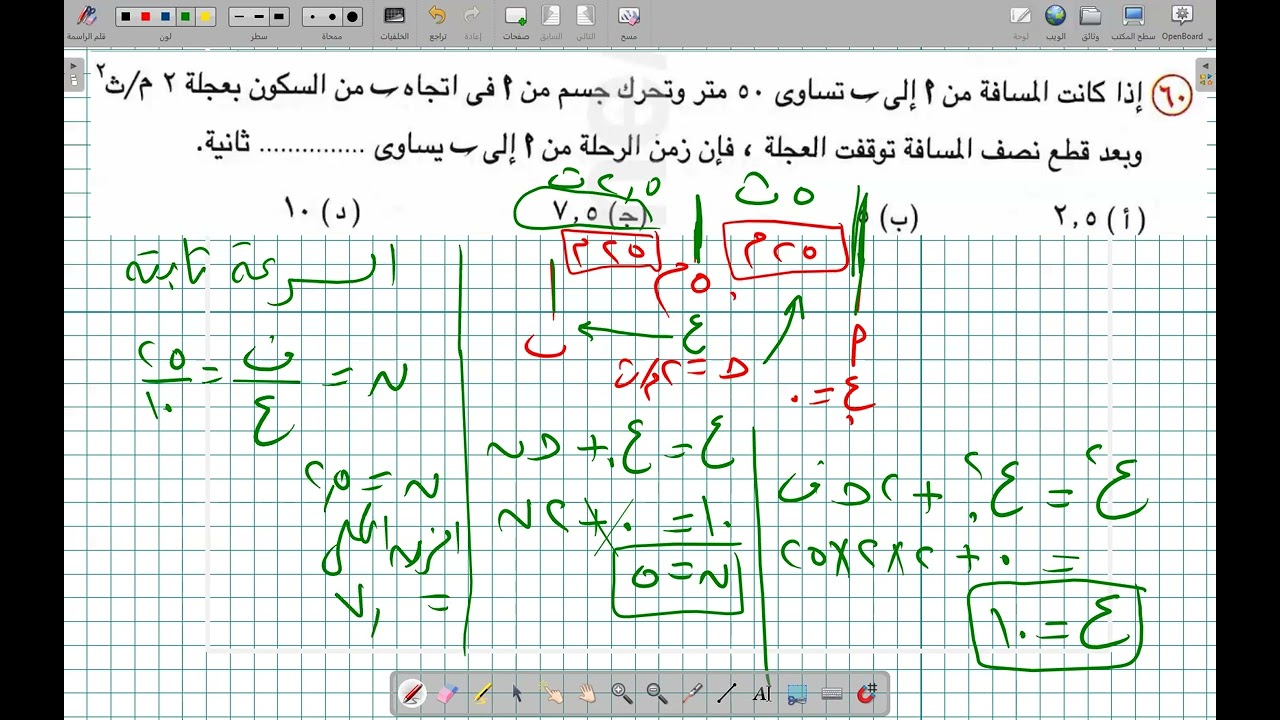 قلم الراسمة
لون
سطر
ممحاة
الخلفيات
تراجع
إعادة
صفحات
السابق
التالي
مسح
لوحة
الويب
وثائق
سطح المكتب
OpenBoard
٦٠ إذا كانت المسافة من ٢ إلى ب تساوى ٥٠ متر وتحرك جسم من ٢ فى اتجاه ب من السكون بعجلة ٢ م/ث٢
وبعد قطع نصف المسافة توقفت العجلة ، فإن زمن الرحلة من ٢ إلى ب يساوى .............. ثانية.
(أ) ٢,٥
(ب)
(جـ) ٧,٥
(د) ١٠
٥ ث
٢,٥ ث
٢٥ م
٢٥ م
٥٠ م
ع
ب
٢
ع. = ٠
ح = ٢ م/ث
ع٢ = ع.٢ + ٢ ح ف
= ٠ + ٢×٢×٢٥
ع = ١٠
ع = ع. + ح ن
١٠ = ٠ + ٢ ن
ن = ٥
السرعة ثابتة
ن = ف/ع = ٢٥/١٠
ن = ٢,٥
الزمن الكلى
= ٧,